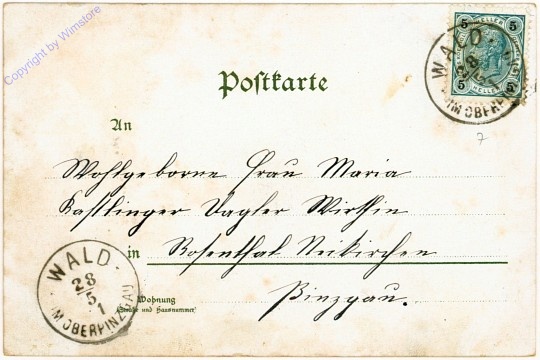 Copyright by Wimstore
5 HELLER 5
5 HELLER 5
WALD
28
5
IM OBERPINZ
7
Postkarte
An
Wohlgeborne Frau Maria
Kastlinger Wirthin
in Rosenthal Neikirchen
Pinzgau.
Wohnung
(Straße und Hausnummer)
WALD
28
5
1
IM OBERPINZGAU